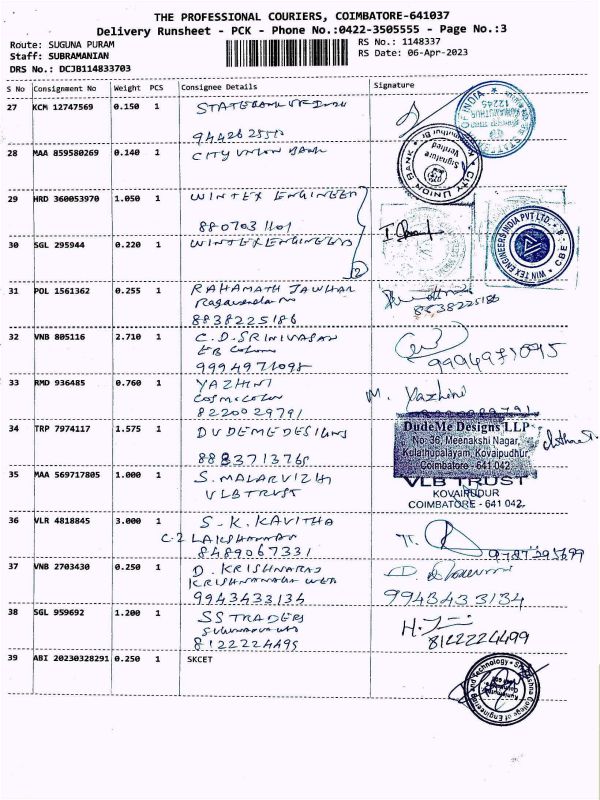 THE PROFESSIONAL COURIERS, COIMBATORE-641037
Delivery Runsheet - PCK - Phone No.:0422-3505555 - Page No.:3
Route: SUGUNA PURAM
RS No.: 1148337
Staff: SUBRAMANIAN
RS Date: 06-Apr-2023
DRS No.: DCJB114833703
S No Consignment No Weight PCS Consignee Details Signature
27 KCM 12747569 0.150 1
12245
28 MAA 859580269 0.140 1 CITY UNION BANK
CITY UNION BANK
Signature
Verified
29 HRD 360053970 1.050 1 WINTEX ENGINEER
8807031101
WIN TEX ENGINEERS INDIA PVT LTD. CBE
30 SGL 295944 0.220 1 WINTEX ENGINEERS
2
31 POL 1561362 0.255 1 RAHAMATH JAWHAR
8838225186
8838225186
32 VNB 805116 2.710 1 C.D. SRINIVASAN
EB Colony
9994971095
9994971095
33 RMD 936485 0.760 1 YAZHINI
8220029791
M. Yazhini
34 TRP 7974117 1.575 1 DUDEME DESIGNS
DudeMe Designs LLP
No: 36, Meenakshi Nagar,
Kulathupalayam, Kovaipudhur,
Coimbatore - 641 042
35 MAA 569717805 1.000 1 S. MALARVIZHI
VLB TRUST
VLB TRUST
KOVAIPUDUR
COIMBATORE - 641 042.
36 VLR 4818845 3.000 1 S. K. KAVITHA
8489067331
9787395699
37 VNB 2703430 0.250 1 D. KRISHNARAJ
9943433134
9943433134
38 SGL 959692 1.200 1 SS TRADERS
8122224499
8122224499
39 ABI 20230328291 0.250 1 SKCET